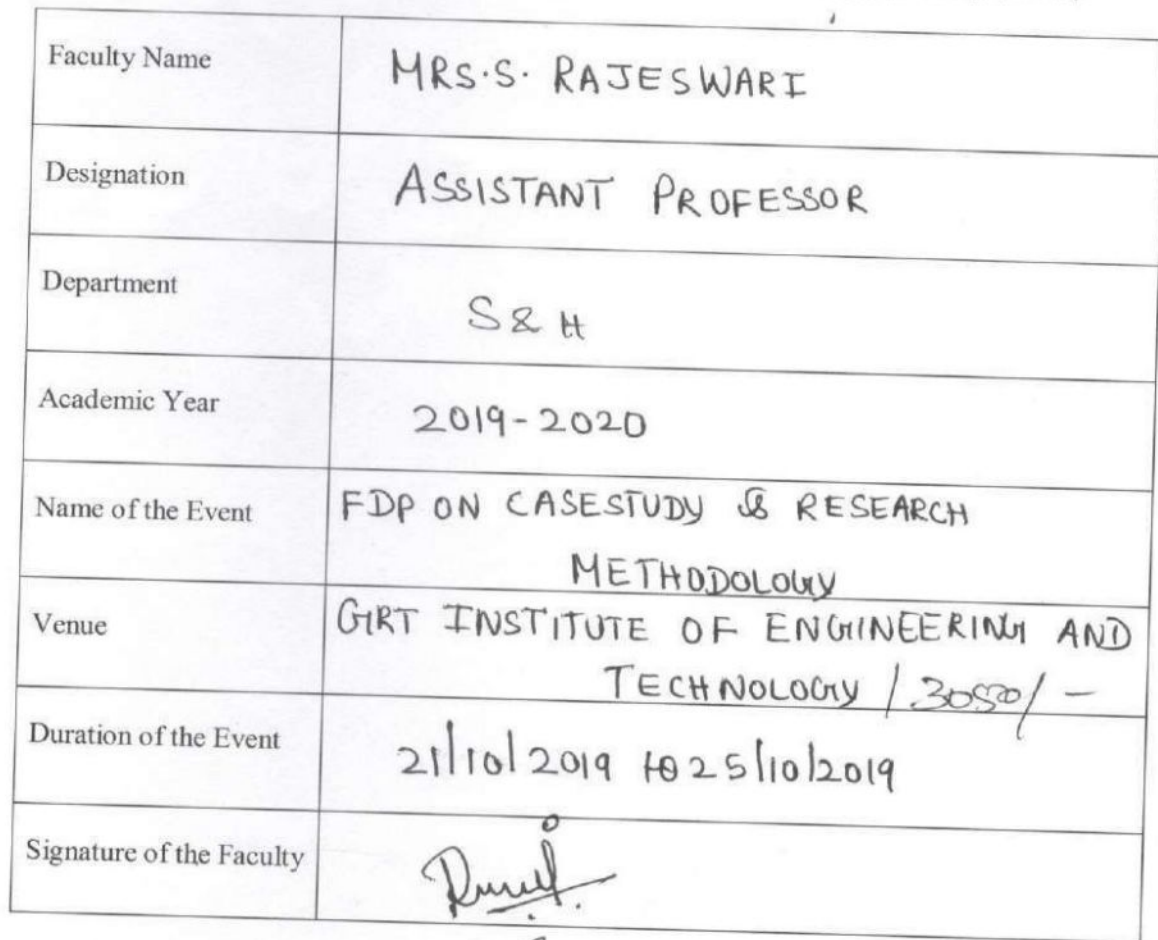 Faculty Name MRS.S. RAJESWARI
Designation ASSISTANT PROFESSOR
Department S & H
Academic Year 2019-2020
Name of the Event FDP ON CASESTUDY & RESEARCH
METHODOLOGY
Venue GRT INSTITUTE OF ENGINEERING AND
TECHNOLOGY /
Duration of the Event 21/10/2019 to 25/10/2019
Signature of the Faculty